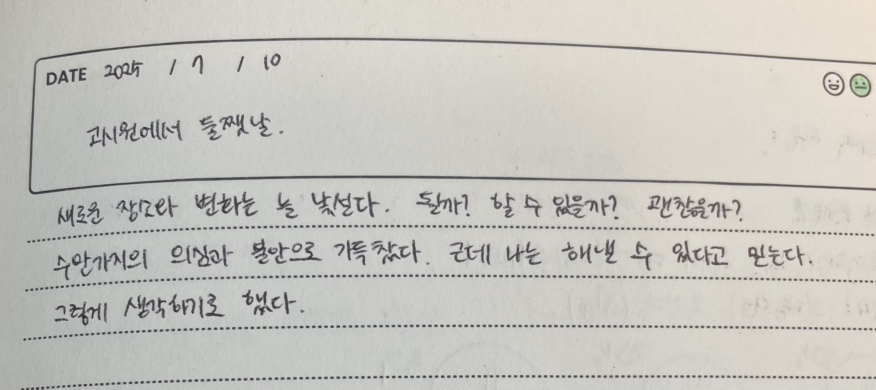 DATE 2025 / 7 / 10
고시원에서 둘쨋날.
새로운 장소와 변화는 늘 낯설다. 될까? 할 수 있을까? 괜찮을까?
수만가지의 의심과 불안으로 가득찼다. 근데 나는 해낼 수 있다고 믿는다.
그렇게 생각하기로 했다.